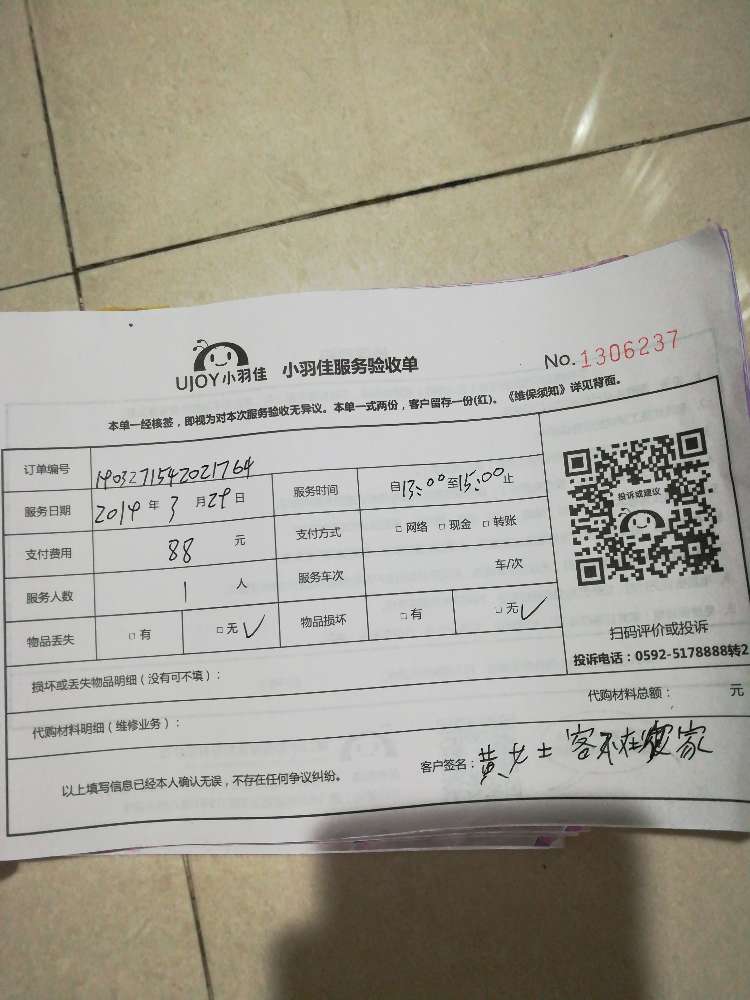 UJOY小羽佳 小羽佳服务验收单 No.1306237
本单一经核签，即视为对本次服务验收无异议。本单一式两份，客户留存一份(红)。《维保须知》详见背面。
订单编号 1903271542021764
服务日期 2019年3月29日 服务时间 自13:00至15:00止
投诉或建议
支付费用 88元 支付方式 □网络 □现金 □转账
服务人数 1人 服务车次 车/次
物品丢失 □有 □无✓ 物品损坏 □有 □无✓
扫码评价或投诉
投诉电话：0592-5178888转2
损坏或丢失物品明细（没有可不填）：
代购材料明细（维修业务）： 代购材料总额： 元
以上填写信息已经本人确认无误，不存在任何争议纠纷。 客户签名：黄女士 客不在家